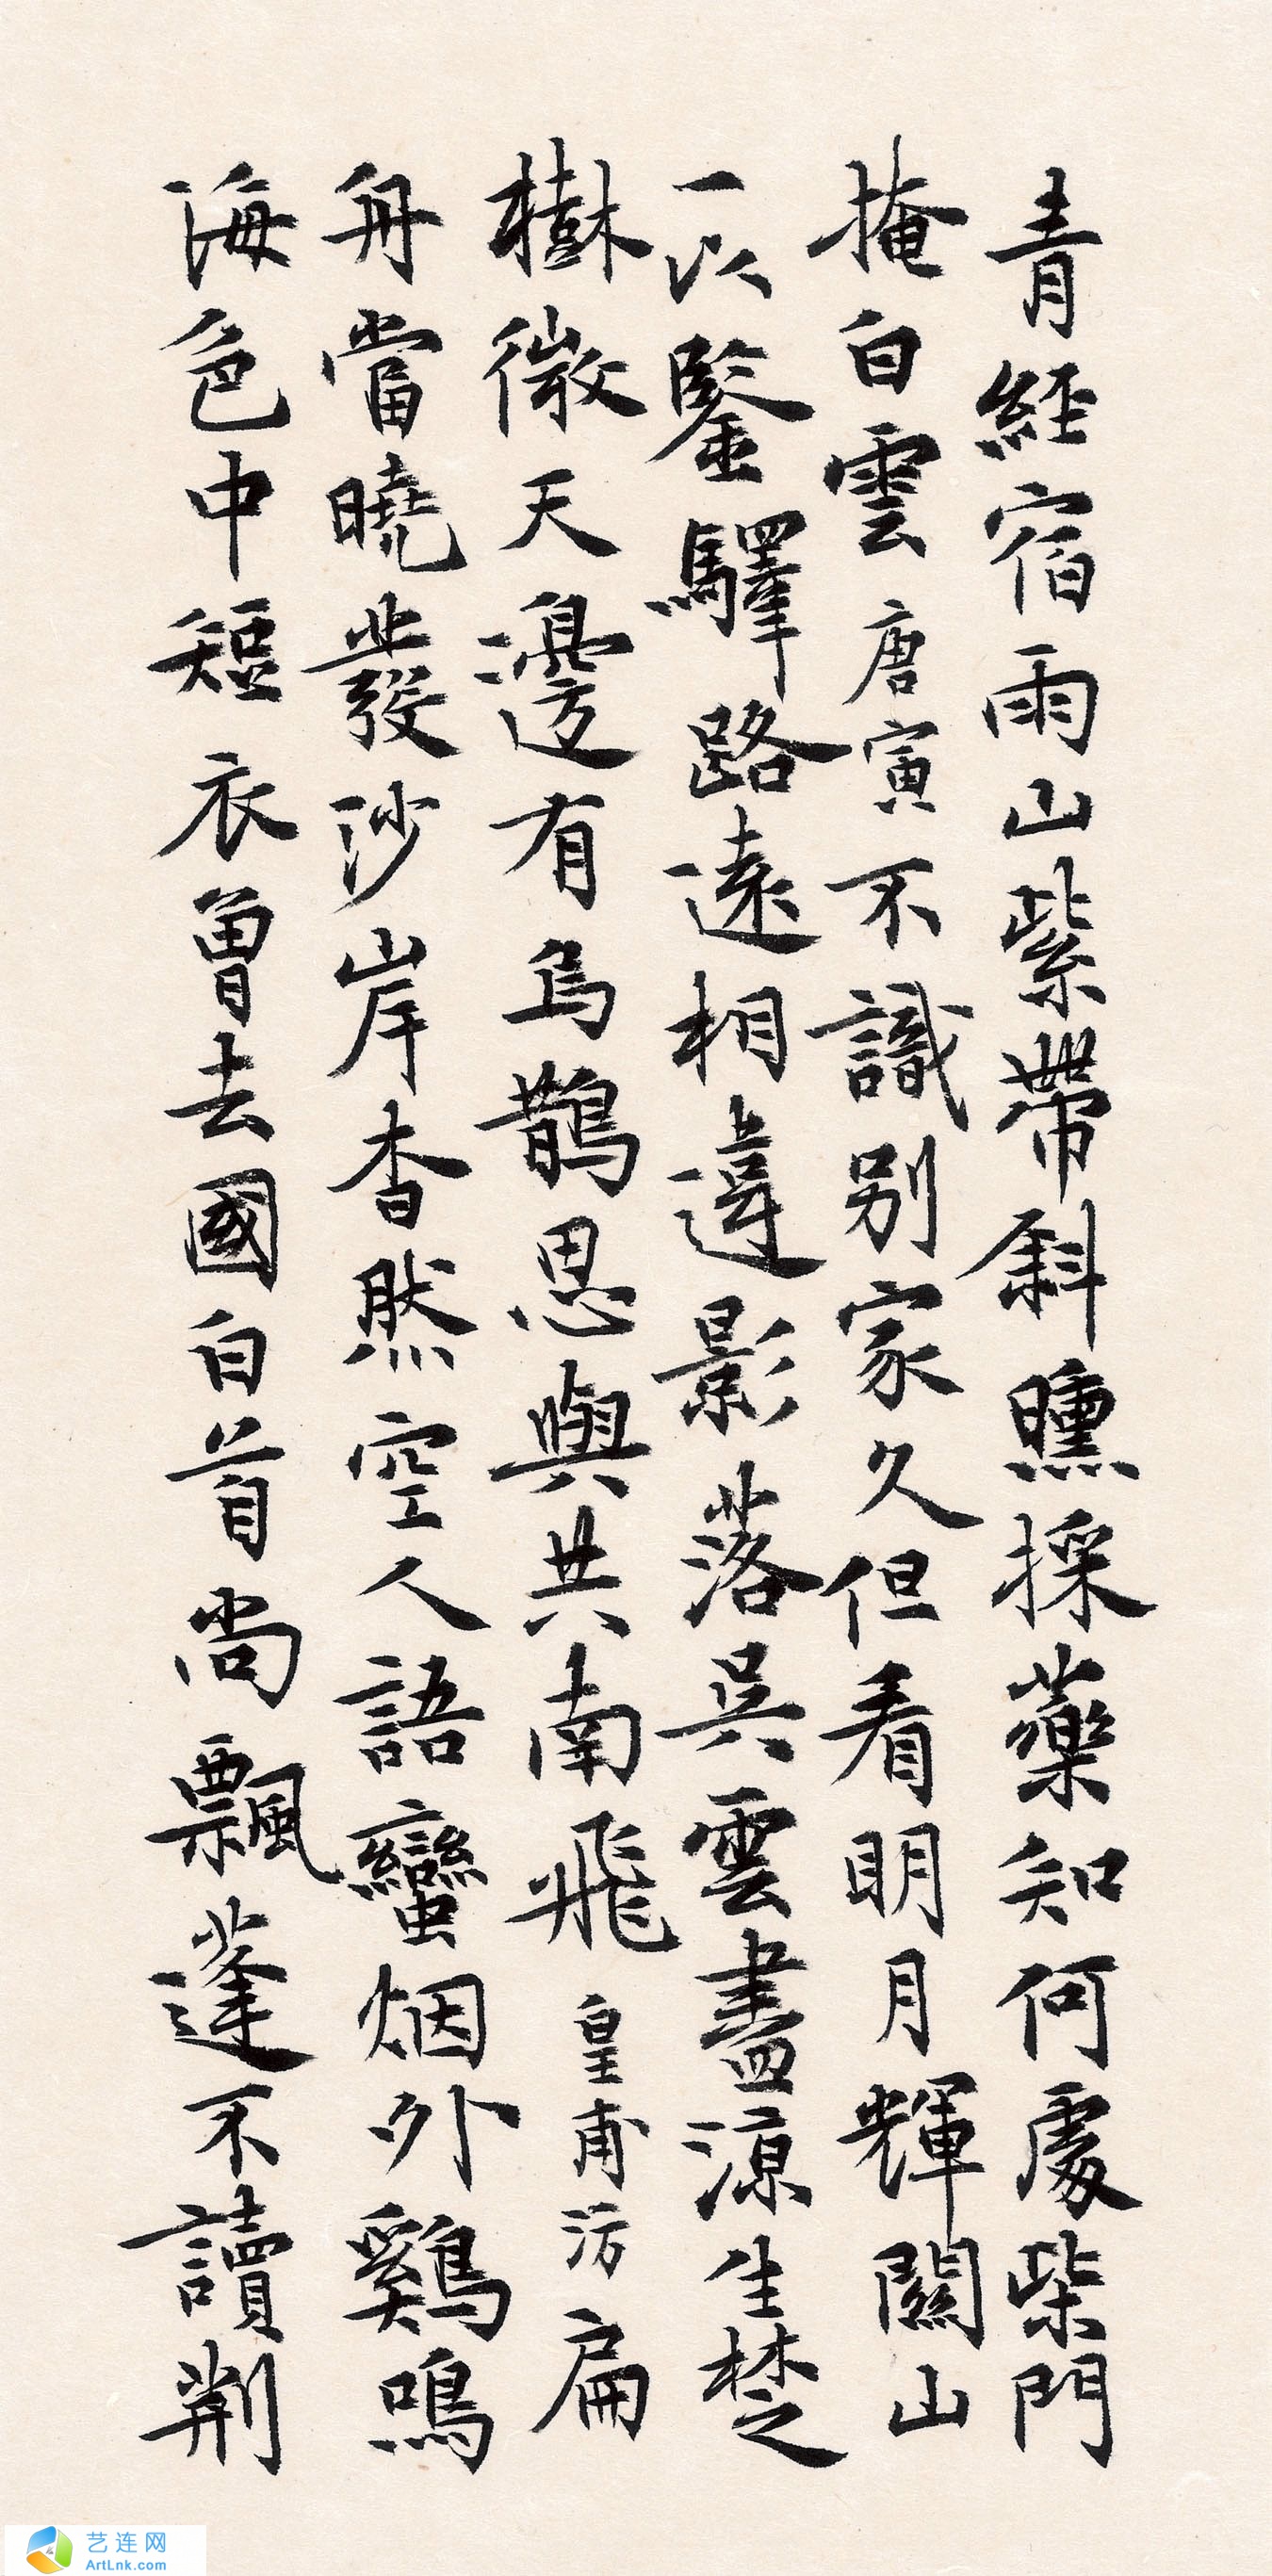 青經宿雨山紫帶斜曛採藥知何處柴門
掩白雲唐寅不識别家久但看明月輝關山
一以鑒驛路遠相違影落吳雲盡涼生楚
樹微天邊有烏鵲思與共南飛皇甫汸扁
舟當曉發沙岸杳然空人語蠻烟外鷄鳴
海色中短衣曾去國白首尚飄蓬不讀荆
艺连网
ArtLnk.com